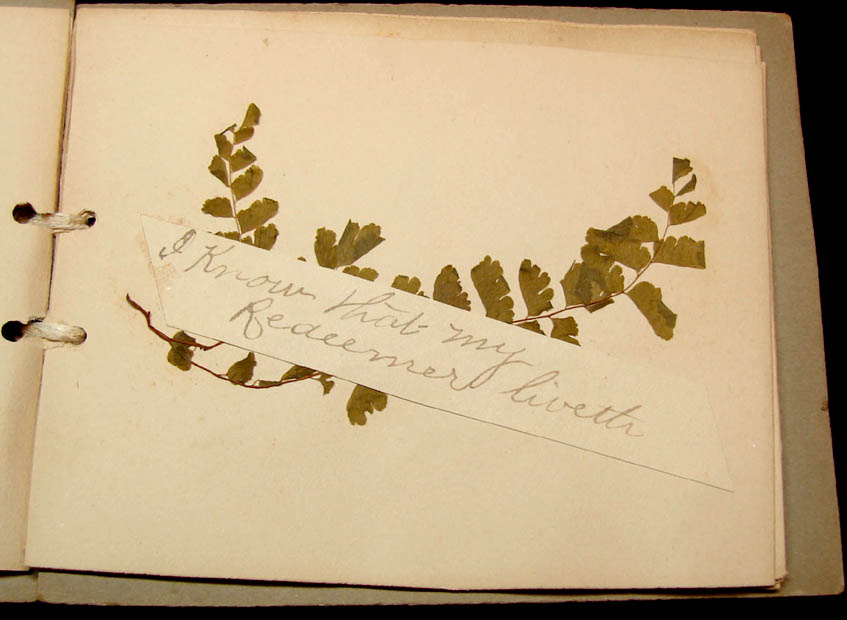 I Know that my
Redeemer liveth